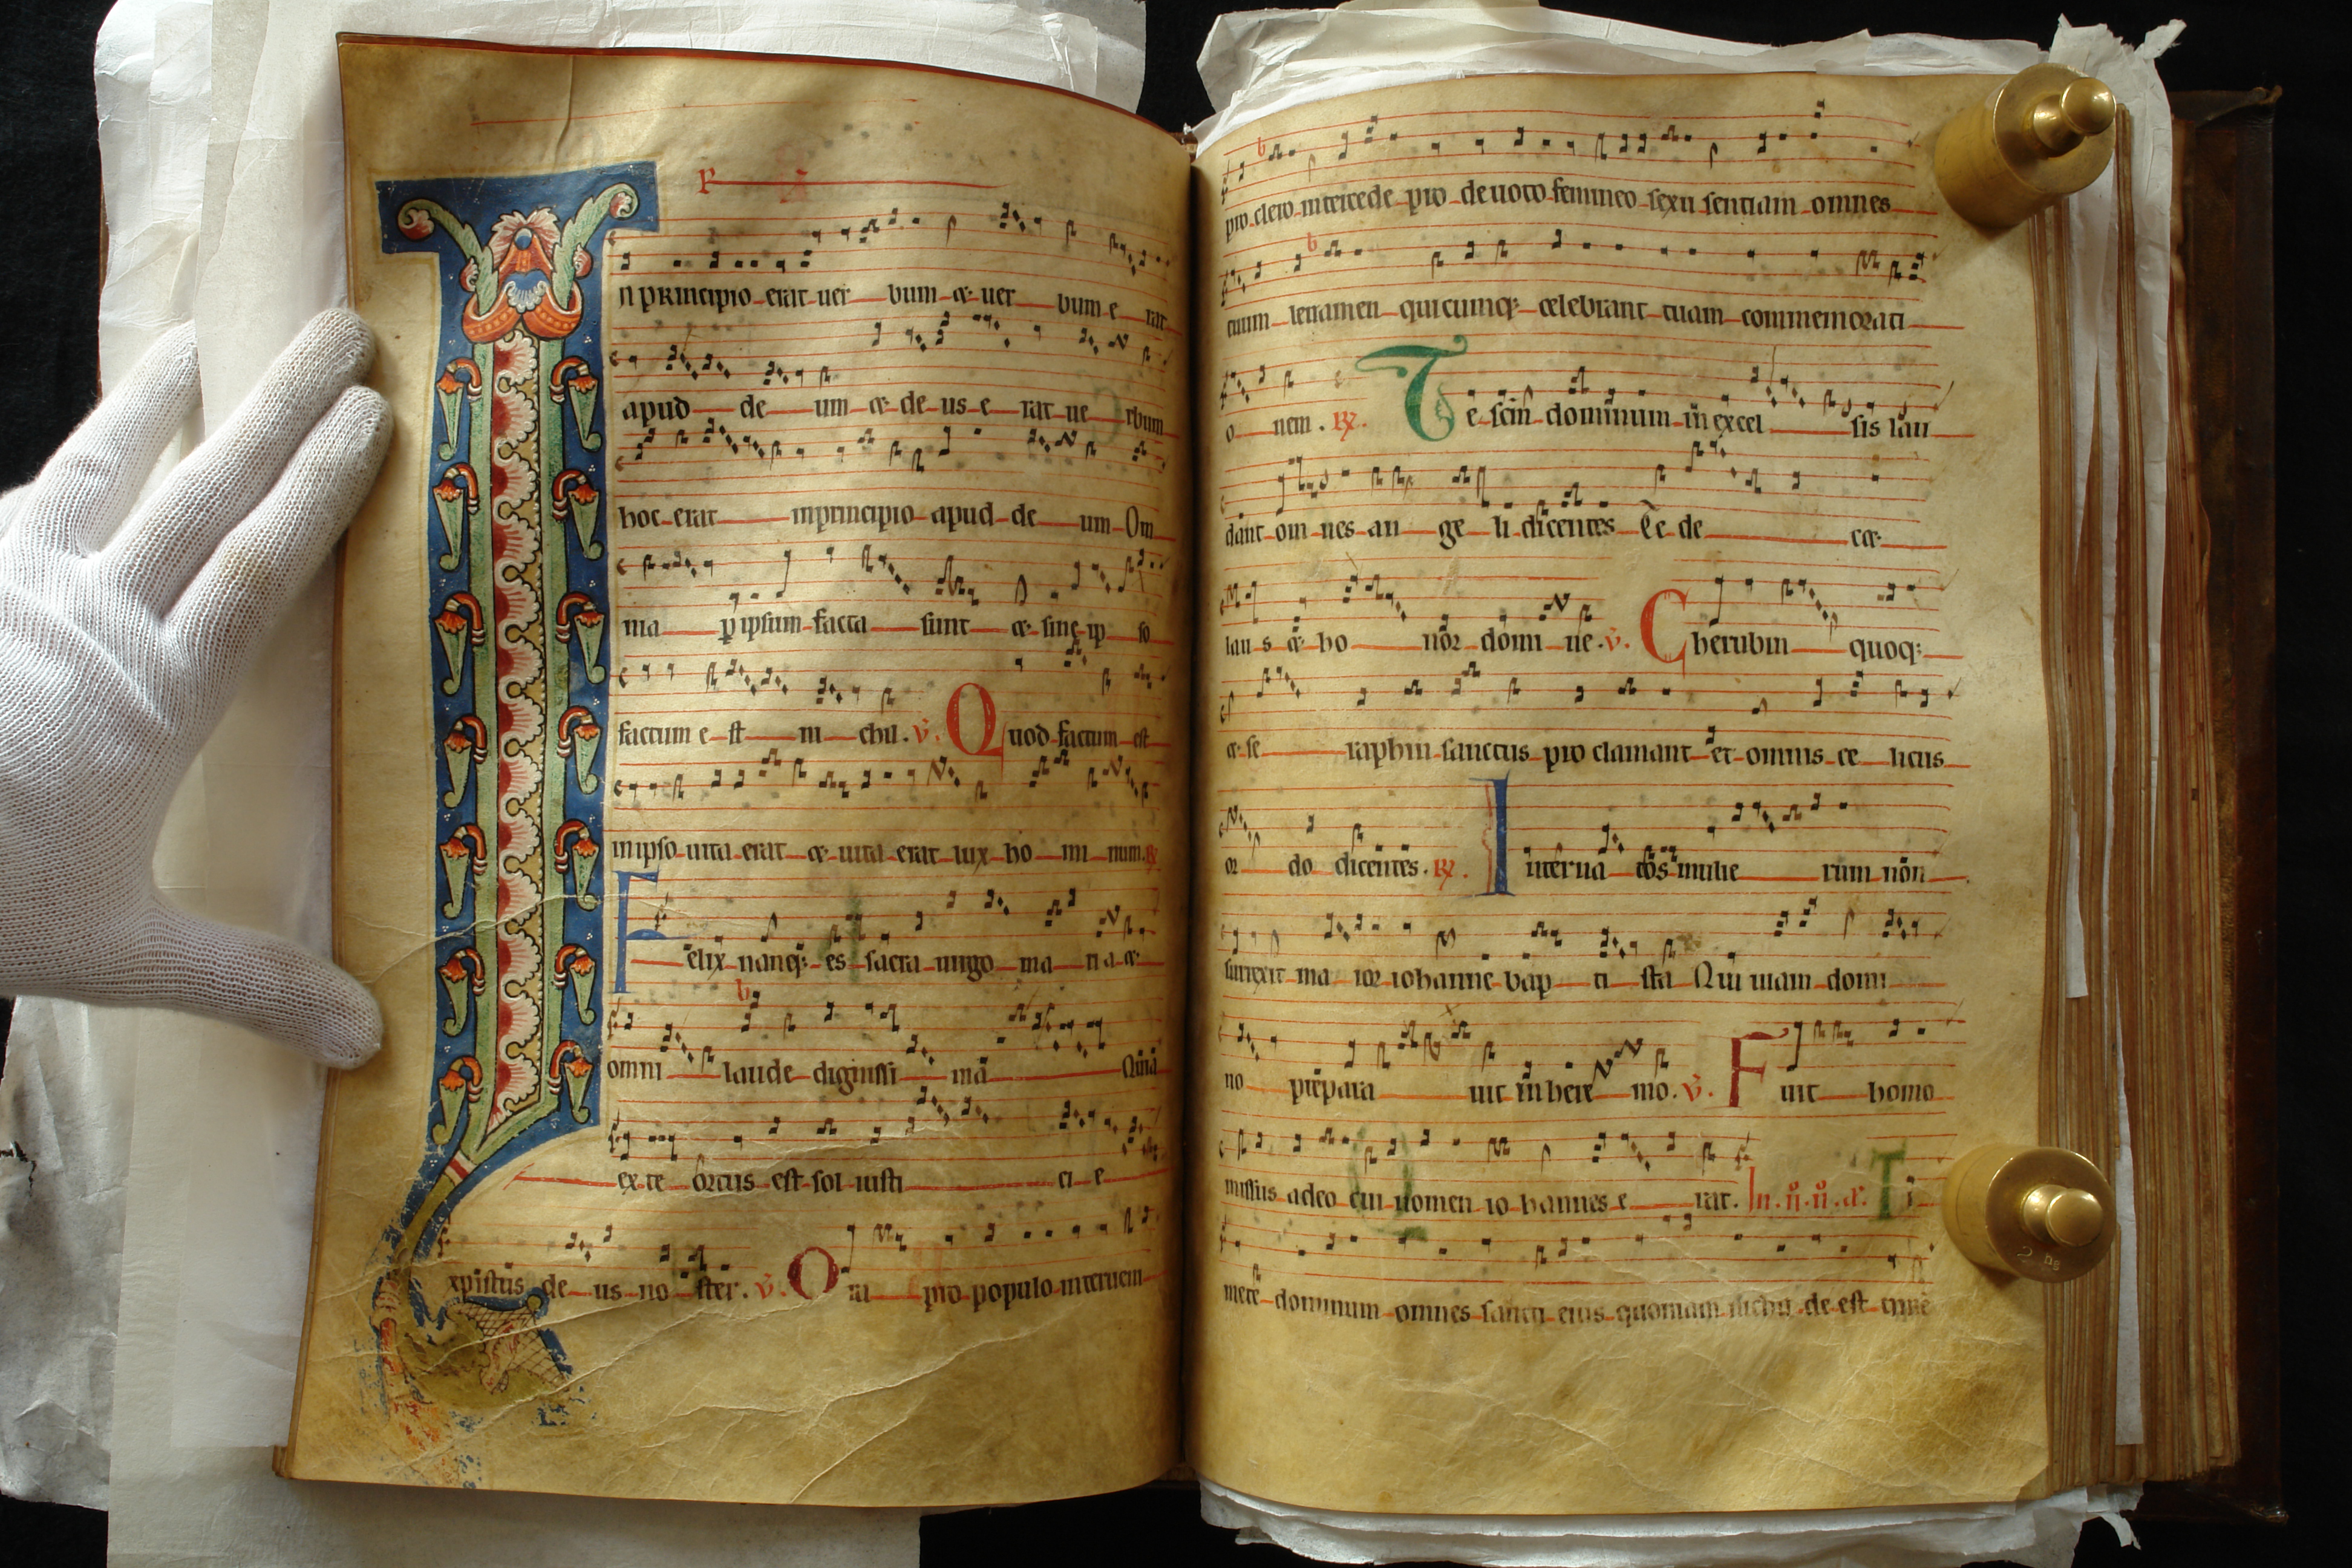 In principio erat uer bum & uer bum e rat
apud de um & de us e rat ue rbum
hoc erat in principio apud de um Om
ma ꝑ ipsum facta sunt & sine ip so
factum e st ni chil. ℣. Quod factum est
in ipso uita erat & uita erat lux ho mi num. ℟
Felix nanq; es sacra uirgo ma ri a &
omni laude dignissi ma Quia
ex te ortus est sol iusti ci e
xpistus de us no ster. ℣. Ora pro populo interueni
pro clero intercede pro deuoto femineo sexu sentiant omnes
tuum leuamen quicumq; celebrant tuam commemorati
o nem. ℟. Te scm̄ dominum in excel sis lau
dant om nes an ge li dicentes Te de cet
lau s & ho nor domi ne. ℣. Cherubin quoq;
& se raphin sanctus pro clamant et omnis ce licus
or do dicentes. ℟. Inter na tos mulie rum non
surrexit ma ior iohanne bap ti sta Qui uiam domi
no prepara uit in here mo. ℣. Fuit homo
missus a deo cui nomen io hannes e rat. In. n. u. a. Ti
mete dominum omnes sancti eius quoniam nichil de est time